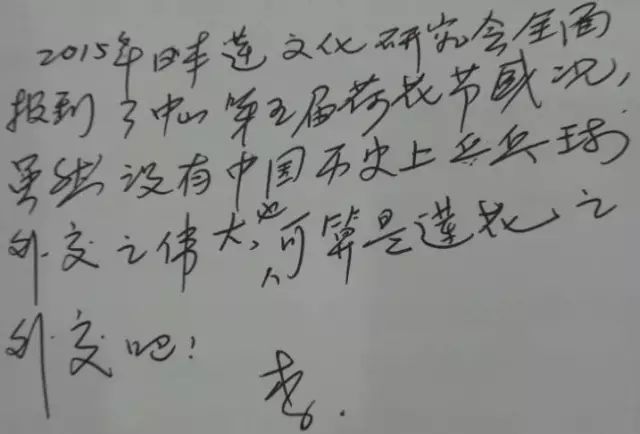 2015年日本莲文化研究会全面
报到了中山第五届荷花节盛况,
虽然没有中国历史上乒乓球
外交之伟大,也可算是莲花之
外交吧!
李.